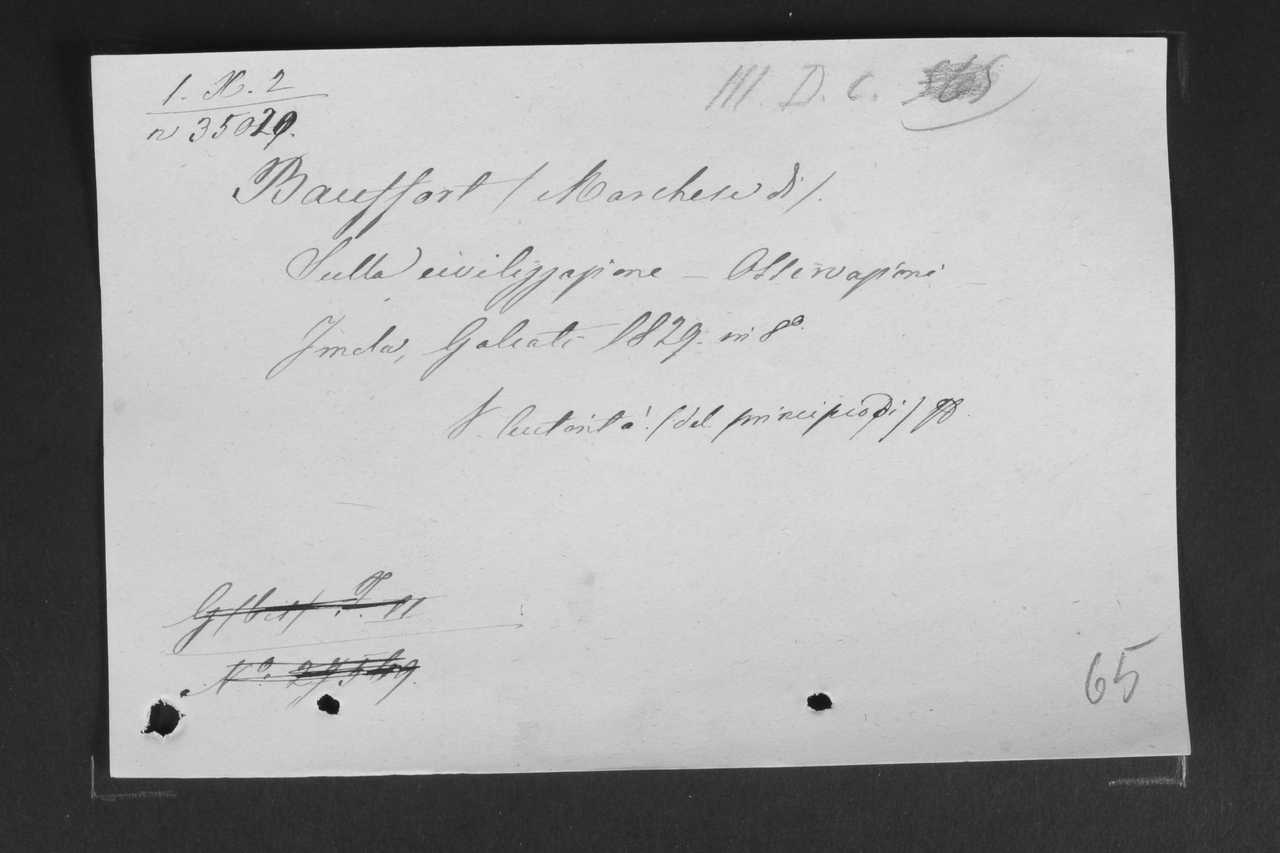 1. X. 2
III. D. C.
n 35029.
Bauffort (Marchese di).
Sulla civilizzazione - Osservazioni -
Imola, Galeati 1829. in 8°.
V. Autorità (del principio di)
N°. 27549.
65